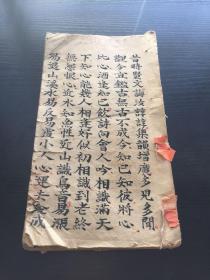 昔時賢文誨汝諄諄集韻增廣多見多聞
觀今宜鑑古無古不成今知己知彼將心
比心酒逢知己飲詩向會人吟相識滿天
下知心能幾人相逢好似初相識到老終
無怨恨心近水知魚性近山識鳥音易漲
易退山溪水易反易覆小人心運去金成